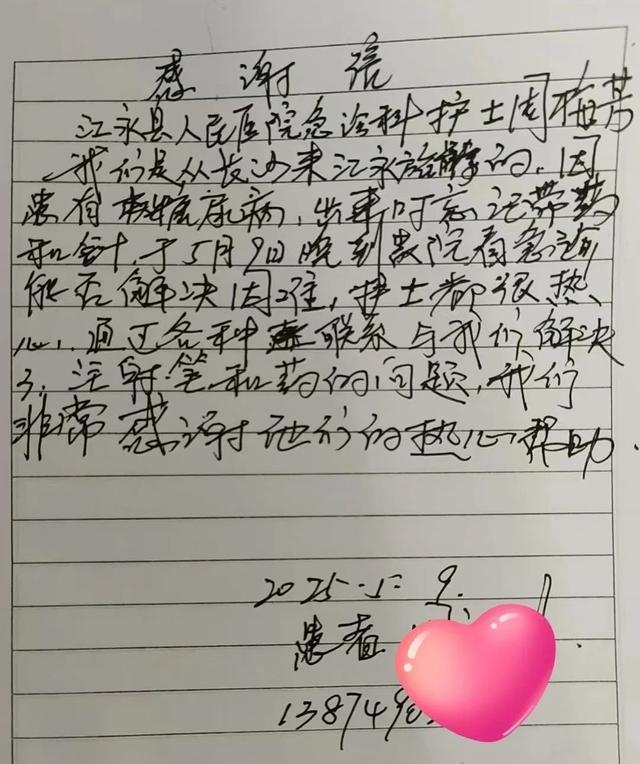 感谢信
江永县人民医院急诊科护士周梅芳
我们是从长沙来江永旅游的，因
患有糖尿病，出来时忘记带药
和针，于5月9日晚到贵院看急诊
能否解决困难，护士都很热
心，通过各科联系与我们解决
了注射笔和药的问题，我们
非常感谢他们的热心帮助.
2025.5.9.
患者
138749